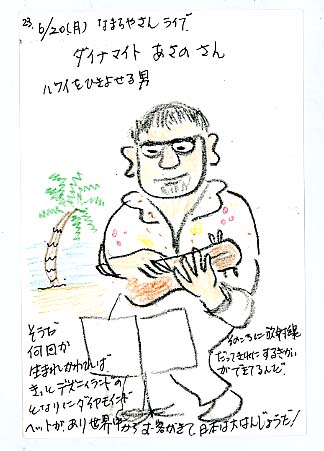 23. 6/20(月) なまらやさん ライブ.
ダイナマイト あさの さん
ハワイをひきよせる男
そうだ
何回か
生まれかわれば
きっとデズニィランドの
となりにダイヤモンド
ヘッドがあり世界中からお客がきて日本は大はんじょうだ!
そのころには放射線
だってきれいにするきかい
ができてるんだ